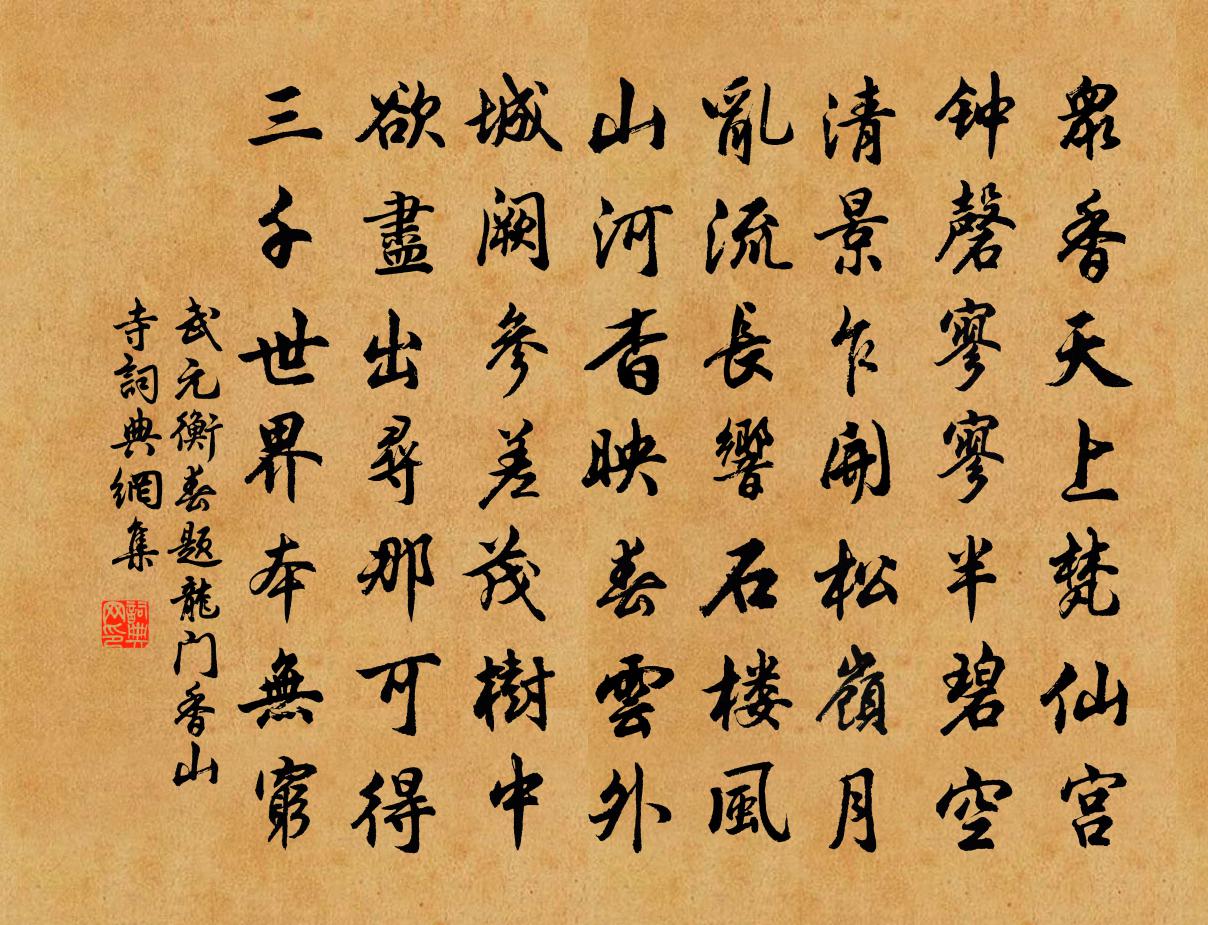 眾香天上梵仙宮
钟磬寥寥半碧空
清景乍開松嶺月
亂流長響石楼風
山河杳映春雲外
城阙參差茂樹中
欲盡出尋那可得
三千世界本無窮
武元衡春题龍门香山
寺詞典網集
詞典网印